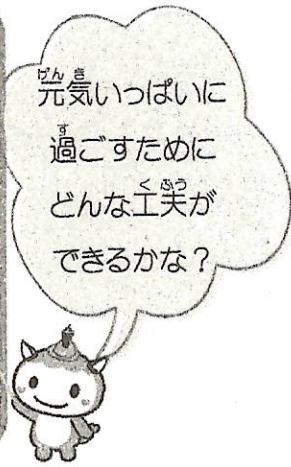 元気いっぱいに
過ごすために
どんな工夫が
できるかな?